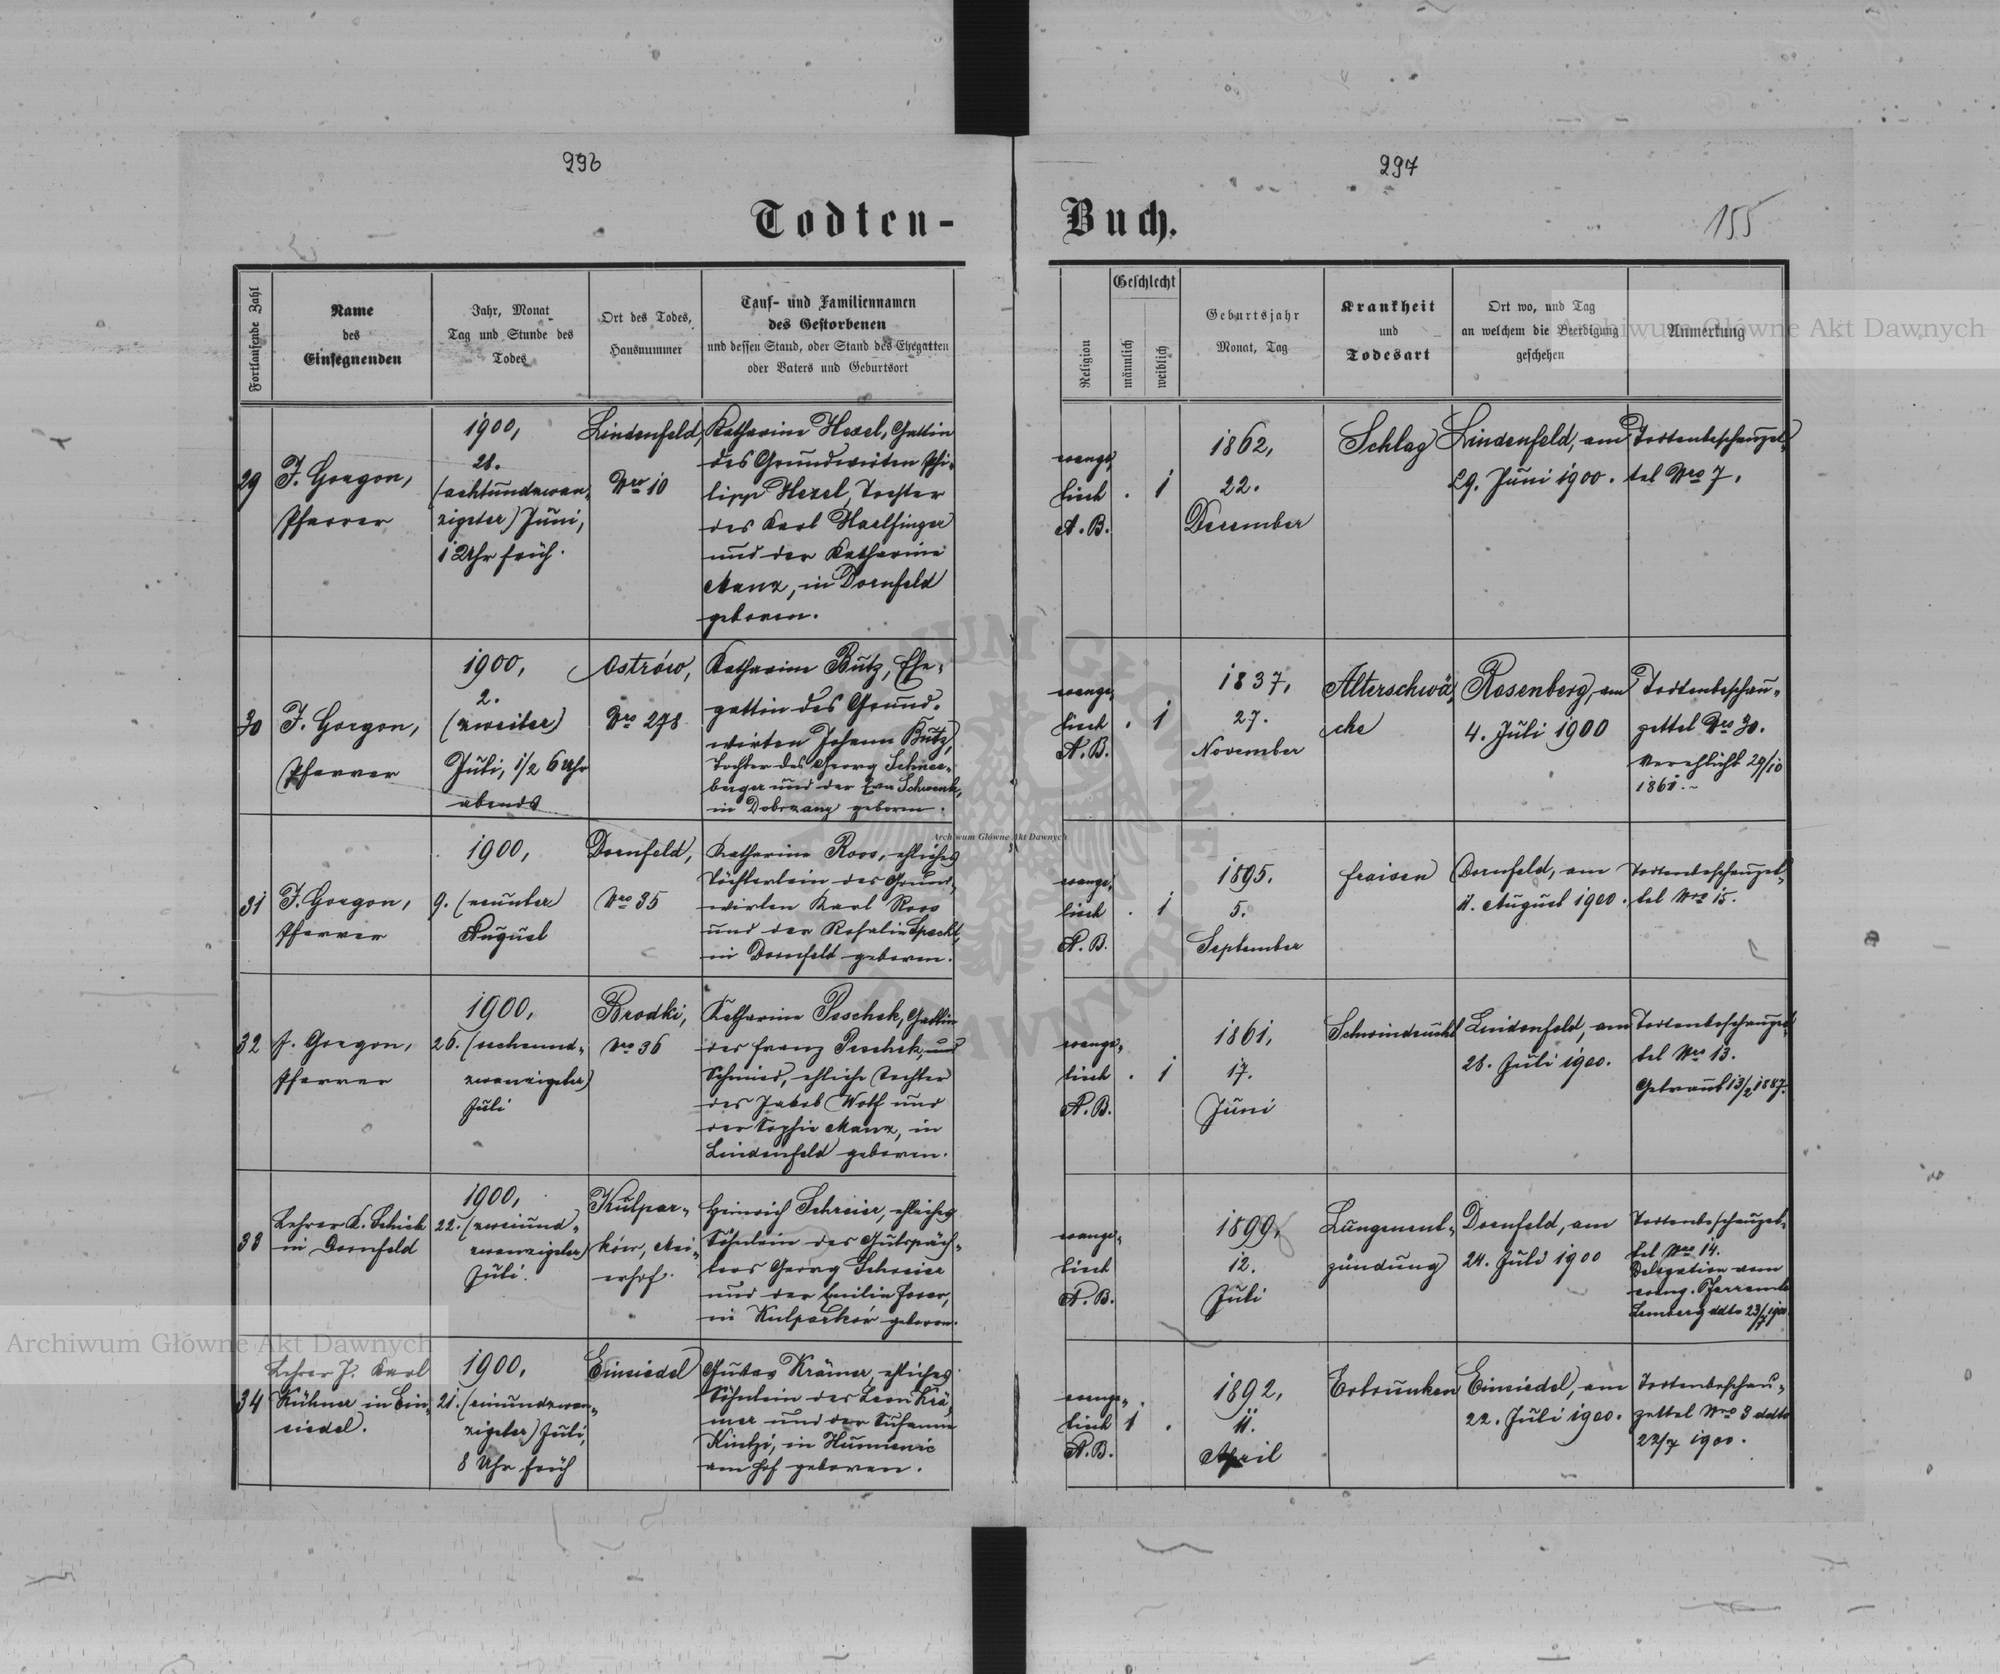 296
297
Todten-
Buch.
155
Fortlaufende Zahl
Name
des
Einsegnenden
Jahr, Monat
Tag und Stunde des
Todes
Ort des Todes,
Hausnummer
Tauf- und Familiennamen
des Gestorbenen
und dessen Stand, oder Stand des Ehegatten
oder Vaters und Geburtsort
Religion
Geschlecht
männlich
weiblich
Geburtsjahr
Monat, Tag
Krankheit
und
Todesart
Ort wo, und Tag
an welchem die Beerdigung
geschehen
Anmerkung
Archiwum Główne Akt Dawnych
29
J. Gorgon,
Pfarrer
1900,
28.
(achtundzwan-
zigster) Juni,
1 Uhr früh.
Lindenfeld,
Nro 10
Katharine Hexel, Gattin
des Grundwirten Phi-
lipp Hexel, Tochter
des Karl Haelfinger
und der Katharine
Manz, in Dornfeld
geboren.
evange-
lisch
A. B.
. 1
1862,
22.
December
Schlag
Lindenfeld, am
29. Juni 1900.
Todtenbeschauzet-
tel Nro 7.
30
J. Gorgon,
Pfarrer
1900,
2.
(zweiter)
Juli, 1/2 6 Uhr
abends
Ostrów,
Nro 278
Katharine Butz, Ehe-
gattin des Grund-
wirten Johann Butz,
Tochter des Georg Schnee-
berger und der Eva Schwenk,
in Dobrzany geboren.
evange-
lisch
A. B.
. 1
1837,
27.
November
Alterschwä-
che
Rosenberg, am
4. Juli 1900
Todtenbeschau-
zettel Nro 30.
Verehlicht 29/10
1861.
31
J. Gorgon,
Pfarrer
1900,
9. (neunter)
August
Dornfeld,
Nro 35
Katharine Roos, ehliches
Töchterlein des Grund-
wirten Karl Roos
und der Rosalie Specht,
in Dornfeld geboren.
evange-
lisch
A. B.
. 1
1895.
5.
September
Fraisen
Dornfeld, am
11. August 1900.
Todtenbeschauzet-
tel Nro 15.
32
J. Gorgon,
Pfarrer
1900,
26. (sechsund-
zwanzigster)
Juli
Brodki,
Nro 36
Katharine Peschek, Gattin
des Franz Peschek,
Schmied, ehliche Tochter
des Jakob Wolf und
der Sophie Manz, in
Lindenfeld geboren.
evange-
lisch
A. B.
. 1
1861,
17.
Juni
Schwindsucht
Lindenfeld, am
28. Juli 1900.
Todtenbeschauzet-
tel Nro 13.
Getraut 13/2 1887.
33
Lehrer K. Schick
in Dornfeld
1900,
22. (zweiund-
zwanzigster)
Juli.
Kulpar-
ków, Mei-
erhof.
Heinrich Schreier, ehliches
Söhnlein des Gutspäch-
ters Georg Schreier
und der Emilie
in Kulparków geboren.
evange-
lisch
A. B.
1899,
12.
Juli
Lungenent-
zündung
Dornfeld, am
24. Juli 1900
Todtenbeschauzet-
tel Nro 14.
Delegation vom
evang. Pfarramte
Lemberg ddto 23/7 1900.
34
Lehrer J. Karl
Kühner in Ein-
siedel.
1900,
21. (einundzwan-
zigster) Juli,
8 Uhr früh
Einsiedel
Gustav Krämer, ehliches
Söhnlein des Leon Krä-
mer und der Susanna
Kintzi, in Humieniec
am Hof geboren.
evange-
lisch
A. B.
1 .
1892,
11.
April
Ertrunken
Einsiedel, am
22. Juli 1900.
Todtenbeschau-
zettel Nro 3 ddto
22/7 1900.
Archiwum Główne Akt Dawnych
Archiwum Główne Akt Dawnych